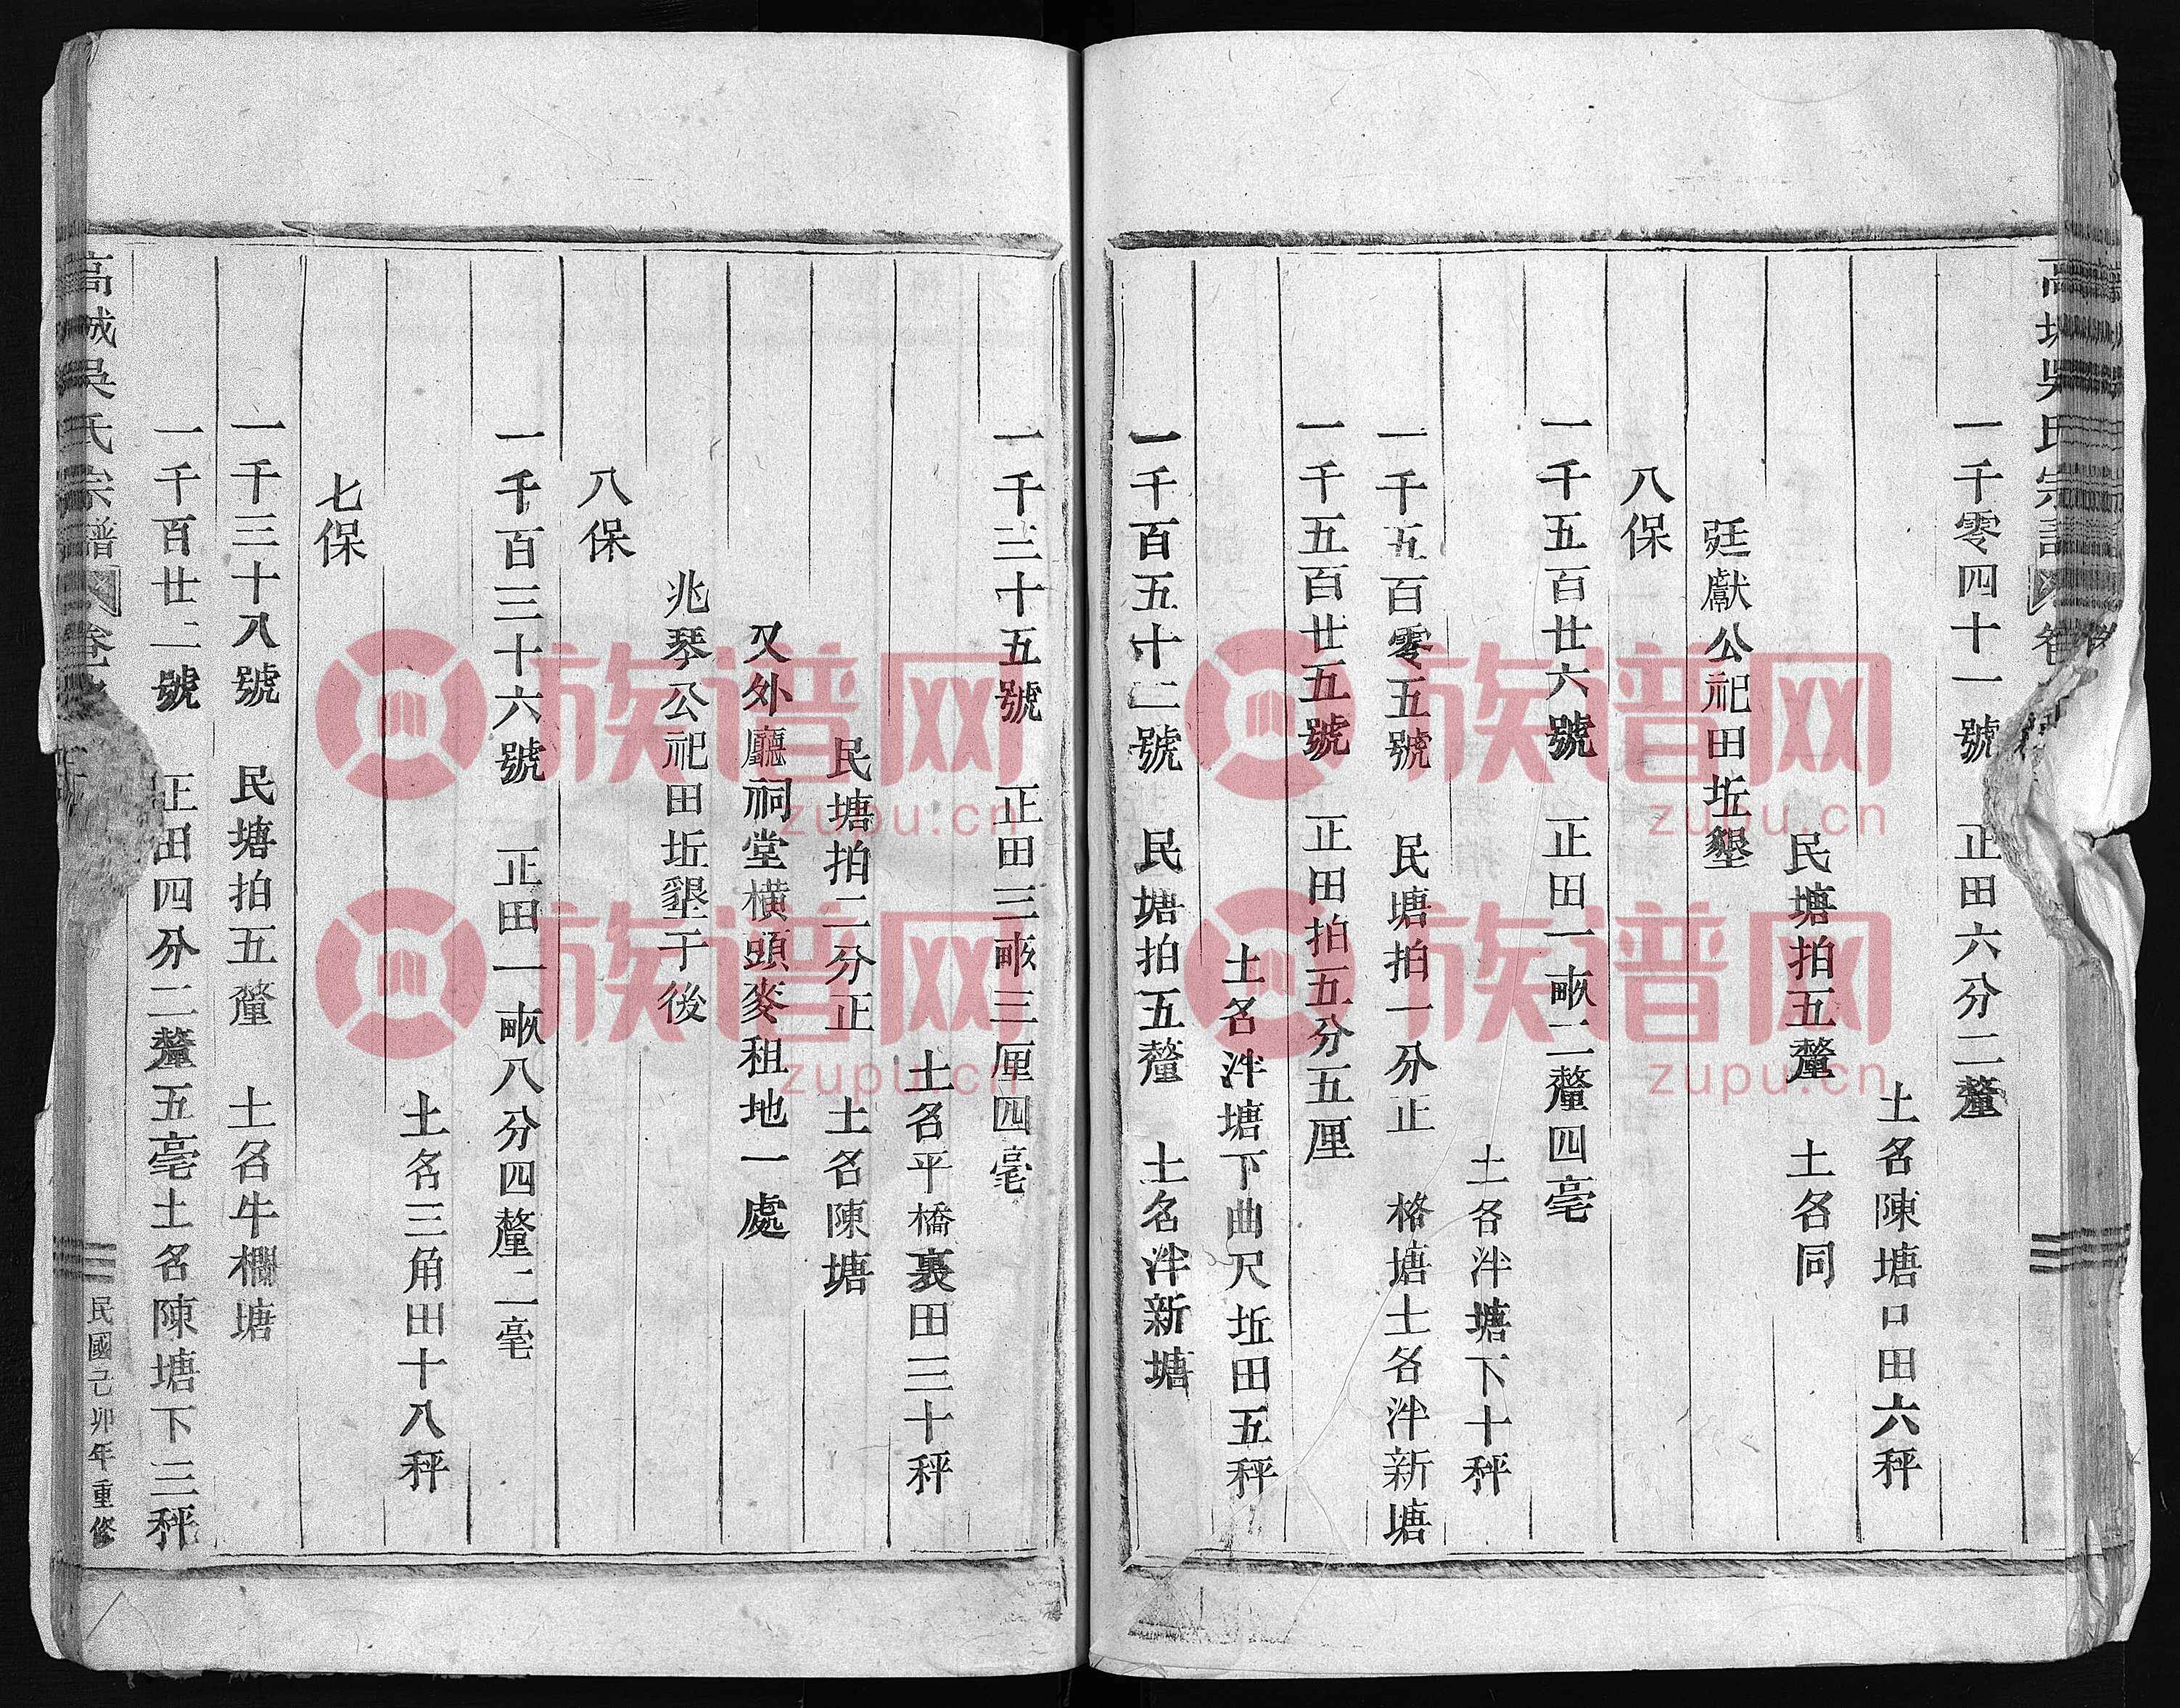 一千零四十一號　正田六分二釐
土名陳塘口田六秤
民塘拍五釐　土名同
廷獻公祀田坵墾
八保
一千五百廿六號　正田一畝二釐四毫
土名泮塘下十秤
一千五百零五號　民塘拍一分正　格塘土名泮新塘
一千五百廿五號　正田拍五分五厘
土名泮塘下曲尺坵田五秤
一千百五十二號　民塘拍五釐　土名泮新塘
一千三十五號　正田三畝三厘四毫
土名平橋裏田三十秤
民塘拍二分正　土名陳塘
又外廳祠堂橫頭麥租地一處
兆琴公祀田坵墾于後
八保
一千百三十六號　正田一畝八分四釐二毫
土名三角田十八秤
七保
一千三十八號　民塘拍五釐　土名牛欄塘
一千百廿二號　正田四分二釐五毫土名陳塘下三秤
高城吳氏宗譜　卷
民國己卯年重修
族谱网
zupu.cn
族谱网
zupu.cn
族谱网
zupu.cn
族谱网
zupu.cn